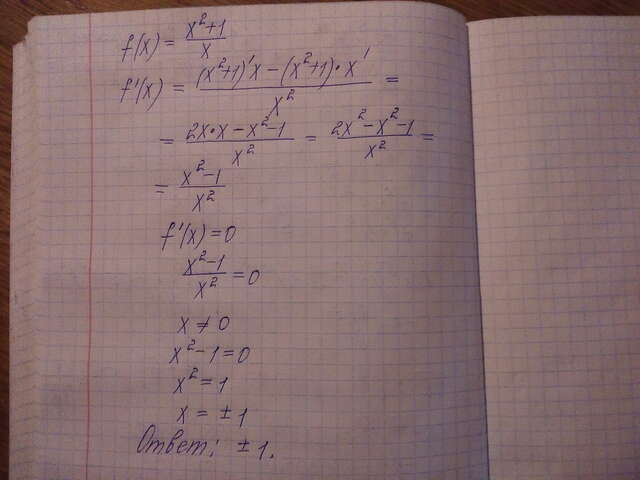 f(x) = (x²+1)/x
f'(x) = ((x²+1)'x − (x²+1)·x')/x² =
= (2x·x − x²−1)/x² = (2x²−x²−1)/x² =
= (x²−1)/x²
f'(x) = 0
(x²−1)/x² = 0
x ≠ 0
x²−1 = 0
x² = 1
x = ±1
Ответ: ±1.